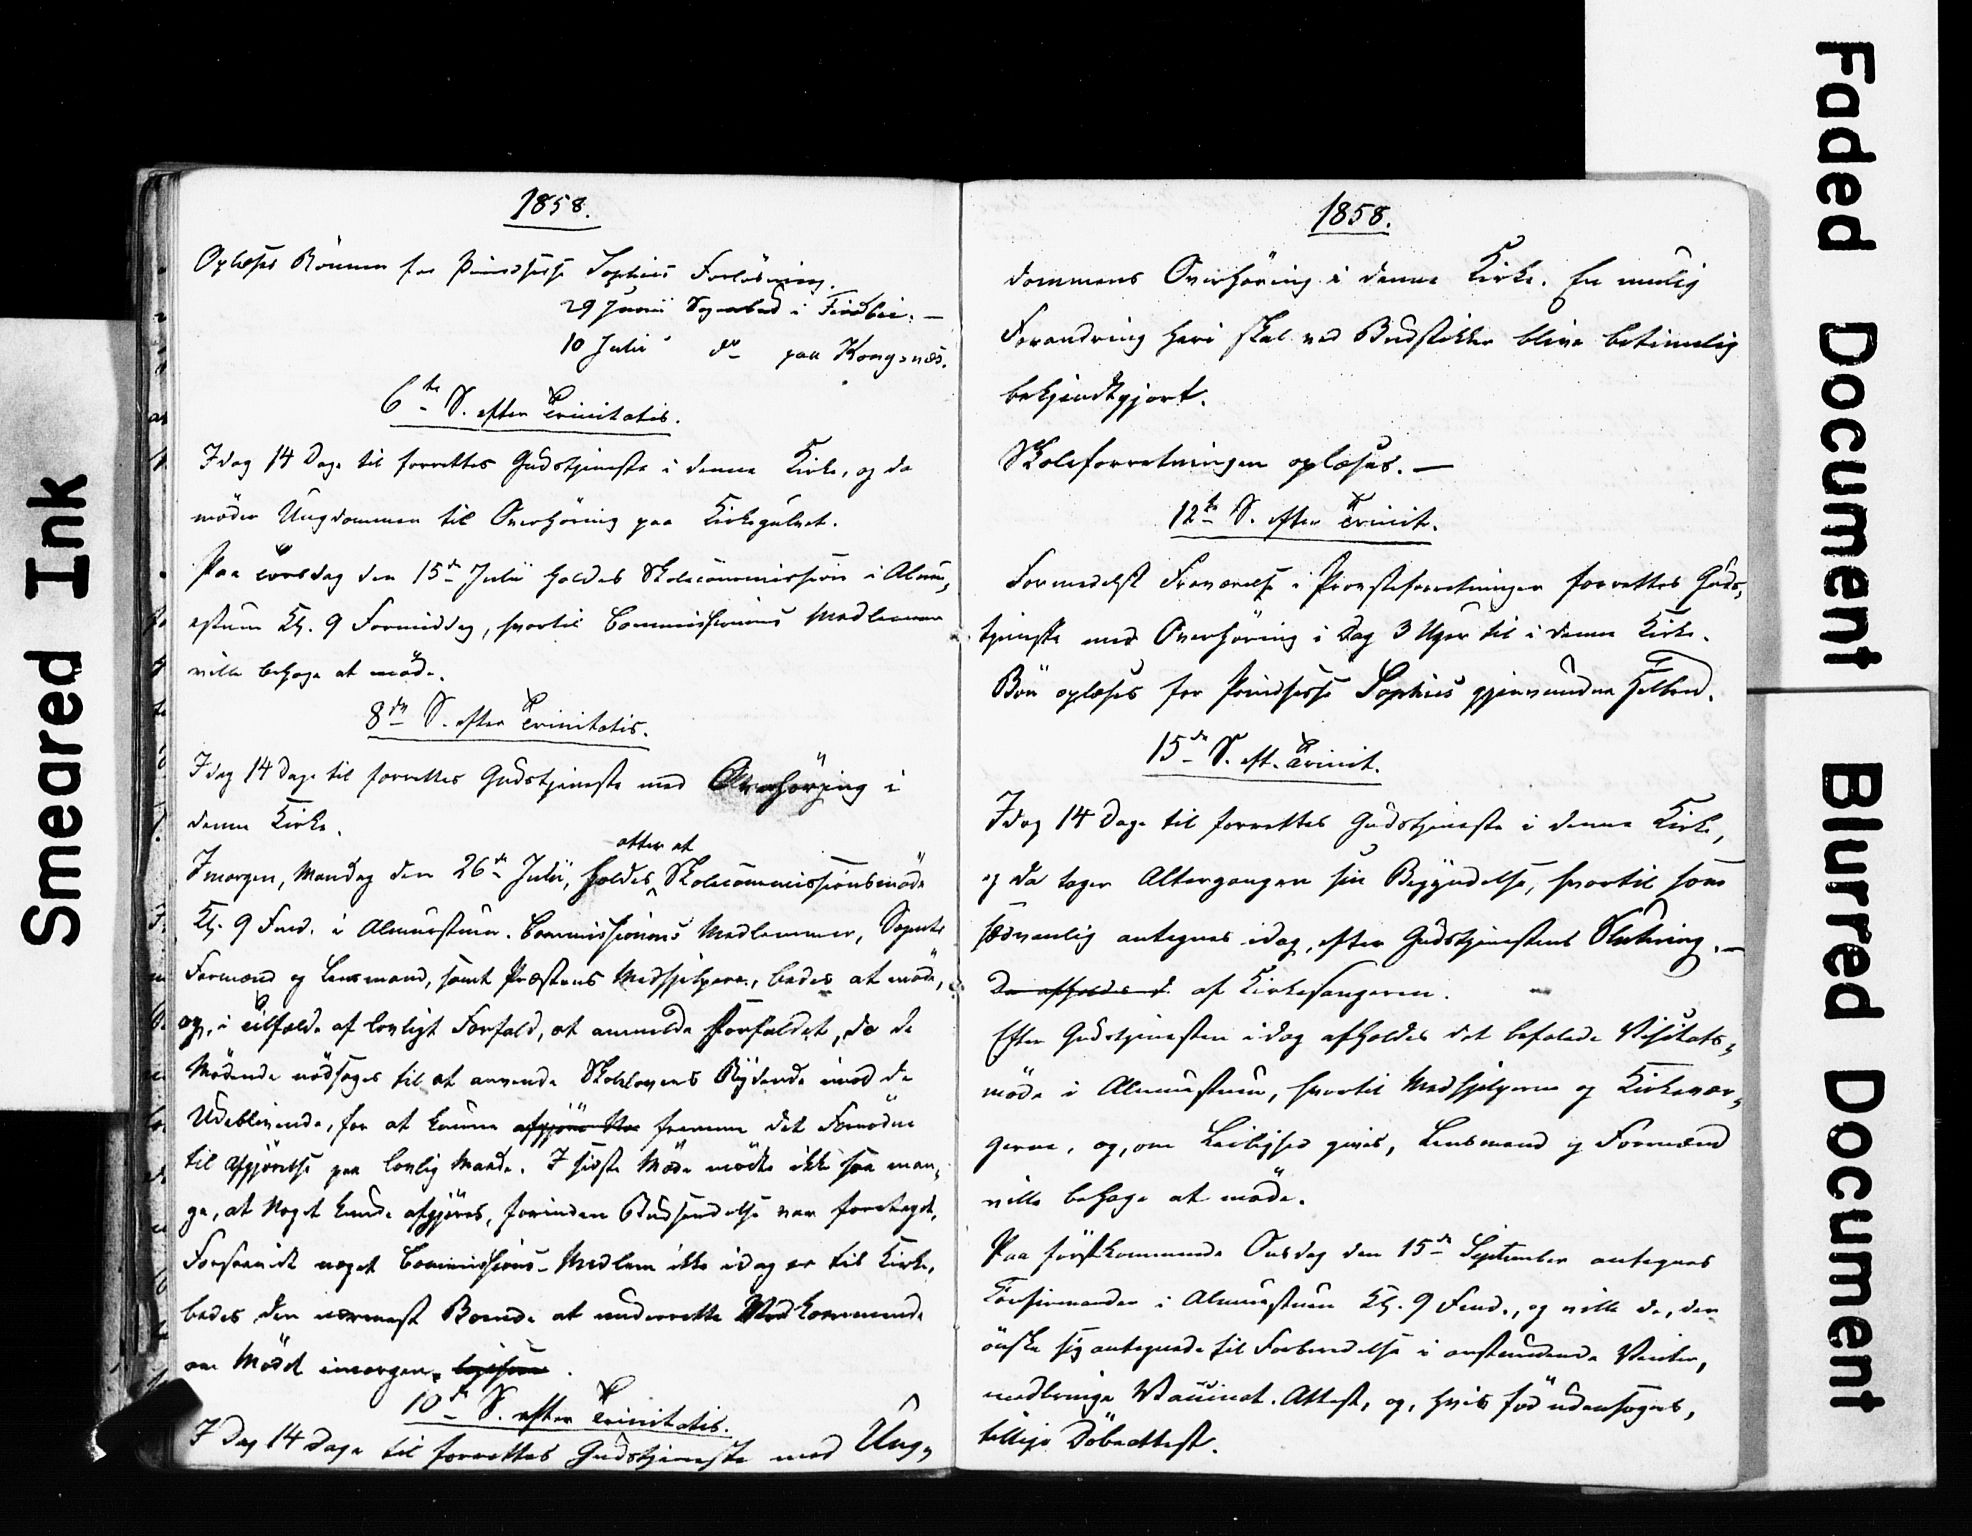 1858.
Oplæses Bönnen for Prindsesse Sophies Forløsning.
29 Junii Sognebud i Findbei. —
10 Julii do paa Kongsnæs.
6te S. efter Trinitatis.
Idag 14 Dage til forrettes Gudstjeneste i denne Kirke, og da
möder Ungdommen til Overhöring paa Kirkegulvet.
Paa torsdag den 15de Julii holdes Skolecommission i Almu„
estuen Kl. 9 Formiddag, hvortil Commissionens Medlemmer
ville behage at möde.
8de S. efter Trinitatis.
Idag 14 Dage til forrettes Gudstjeneste med Overhöring i
denne Kirke.
atter et
Imorgen, Mandag den 26de Julii, holdes Skolecommissionsmöde
Kl. 9 Fmd. i Almuestuen. Commissionens Medlemmer, Sognets
Formænd og Lensmand, samt Præstens Medhjelpere, bedes at möde,
og, i Tilfælde af lovligt Forfald, at anmelde Forfaldet, da de
Mödende nödsages til at anvende Skolelovens Bydende imod de
Udeblivende, for at kunne afgjöre Noe fremme det Fornödne
til Afgjörelse paa lovlig Maade. I sidste Möde mödte ikke saa man„
ge, at Noget kunde afgjöres, forinden Budsendelse var foretaget.
Forsaavidt noget Commissions-Medlem ikke idag er til Kirke,
bedes den nærmest Boende at underrette Vedkommende
om Mödet imorgen.
10de S. efter Trinitatis.
I Dag 14 Dage til forrettes Gudstjeneste med Ung„
1858.
dommens Overhöring i denne Kirke. En mulig
Forandring heri skal ved Budstikke blive betimelig
bekjendtgjort.
Skoleforretningen oplæses. —
12te S. efter Trinit.
Formedelst Fraværelse i Provsteforretninger forrettes Guds„
tjeneste med Overhöring i Dag 3 Uger til i denne Kirke.
Bön oplæses for Prindsesse Sophies gjenvundne Helbred.
15de S. eft. Trinit.
Idag 14 Dage til forrettes Gudstjeneste i denne Kirke,
og da tager Altergangen sin Begyndelse, hvortil som
sædvanlig antegnes idag, efter Gudstjenestens Slutning. —
Da afholdes d. af Kirkesangeren.
Efter Gudstjenesten idag afholdes det befalede Visitats„
möde i Almuestuen, hvortil Medhjelperne og Kirkevær„
gerne, og, om Leilighed gives, Lensmand og Formænd
ville behage at möde.
Paa förstkommende Onsdag den 15de September antegnes
Confirmander i Almuestuen Kl. 9 Fmd., og ville de, der
önske sig antegnede til Forberedelse i anstundende Vinter,
medbringe Vaccinat. Attest, og, hvis föd udensogns,
tillige Döbeattest.
Smeared Ink
Faded Document
Blurred Document